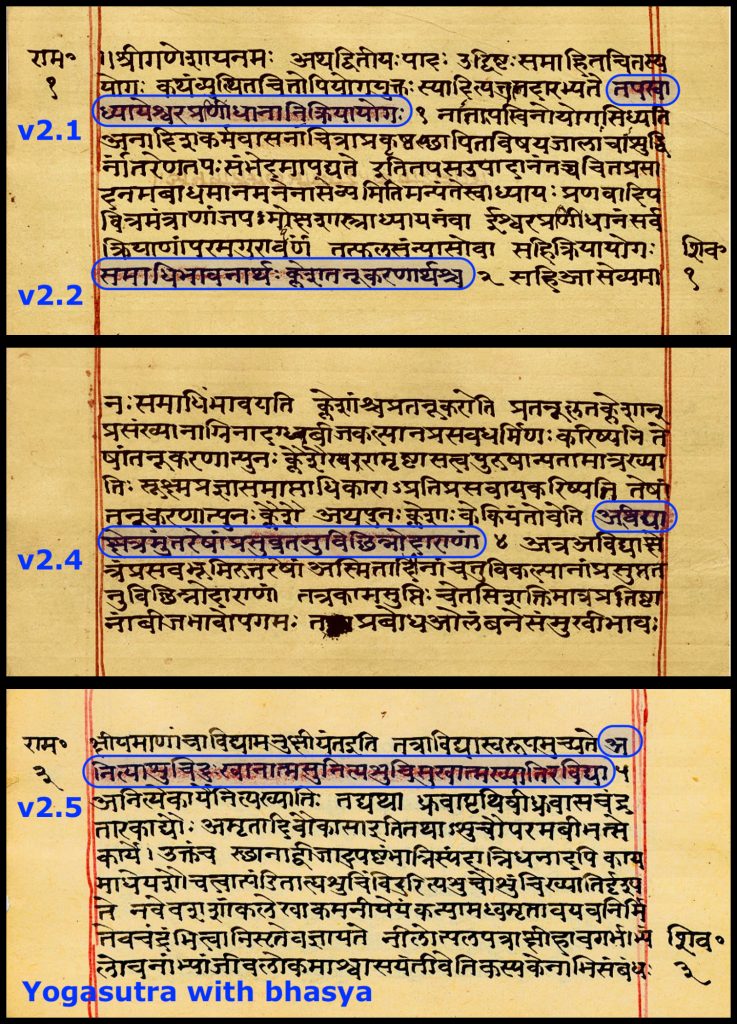 राम॰
१
॥श्रीगणेशायनमः अथद्वितीयःपादः उद्दिष्टःसमाहितचित्तस्य
योगः कथंव्युत्थितचित्तोपियोगयुक्तः स्यादित्येतदारभ्यते तपस्वा
ध्यायेश्वरप्रणीधानानिक्रियायोगः १ नातपस्विनोयोगसिध्यति
v2.1
अनादिक्लेशकर्मवासनाचित्राप्रत्युपस्थापितविषयजालाचाशुद्धि
र्नांतरेणतपःसंभेदमापद्यते इतितपसउपादानंतच्चचितप्रसा
दनमबाधमानमनेनासेव्यमितिमन्यंतेस्वाध्यायः प्रणवादिप
वित्रमंत्राणांजपःमोक्षशास्त्राध्यायनंवा ईश्वरप्रणीधानंसर्व
क्रियाणांपरमगुरावर्पणं तत्फलसंन्यासोवा सहिक्रियायोगः
शिव
१
समाधिभावनार्थः क्लेशतनूकरणार्थश्च २ सहिआसेव्यमा
v2.2
नःसमाधिंभावयति क्लेशांश्चप्रतनूकरोति प्रतनूकृतक्लेशान्
प्रसंख्यानाग्निनादग्धबीजकल्पानप्रसवधर्मिणःकरिष्यति ते
षांतनूकरणात्पुनः क्लेशैरपरामृष्टासत्वपुरुषान्यतामात्रख्या
तिः सूक्ष्मप्रज्ञासमाप्ताधिकाराऽप्रतिप्रसवायकरिष्यति तेषां
तनूकरणात्पुनः क्लेशै अथपुनःक्लेशाःकेकियंतोवेति अविद्या
क्षेत्रमुत्तरेषांप्रसुप्ततनुविछिन्नोदाराणां ४ अत्रअविद्याक्षे
v2.4
त्रंप्रसवभूमिरुत्तरेषां अस्मितादिनां चतुविकल्पानांप्रसुप्तत
नुविछिन्नोदाराणां तत्रकाप्रसुप्तिः चेतसिशक्तिमात्रप्रतिष्ठा
नांबीजभावोपगमः प्रबोधआलंबनेसंमुखीभावः
राम॰
३
क्षीयमाणांचाविद्यामनुक्षीयंतइति तत्राविद्यास्वरूपमुच्यते अ
नित्याशुचिदुःखानात्मसुनित्यशुचिसुखात्मख्यातिरविद्या ५
v2.5
अनित्येकार्येनित्यख्यातिः तद्यथा ध्रुवापृथिवीध्रुवासचंद्र
तारकाद्यौः अमृतादिवौकासाइतितथाऽशुचौपरमबीभत्से
काये। उक्तंच स्छानाद्बीजादुपष्टंभान्निस्यंदान्निधनादपि काय
माधेयशौचत्वात्पंडिताह्यशुचिंविदुरित्यशुचौशुचिख्यातिर्दृश्य
ते नवेवशशांकलेखाकमनीयेयंकन्यामध्वमृतावयवनिर्मि
तेवचंद्रंभित्वानिसृतेवज्ञायते नीलोत्पलपत्राक्षीहावगर्भाभ्य
शिव॰
३
लोचनाभ्यांजीवलोकमाश्वासयंतीवेतिकस्यकेनाभिसंबंधः
Yogasutra with bhasya